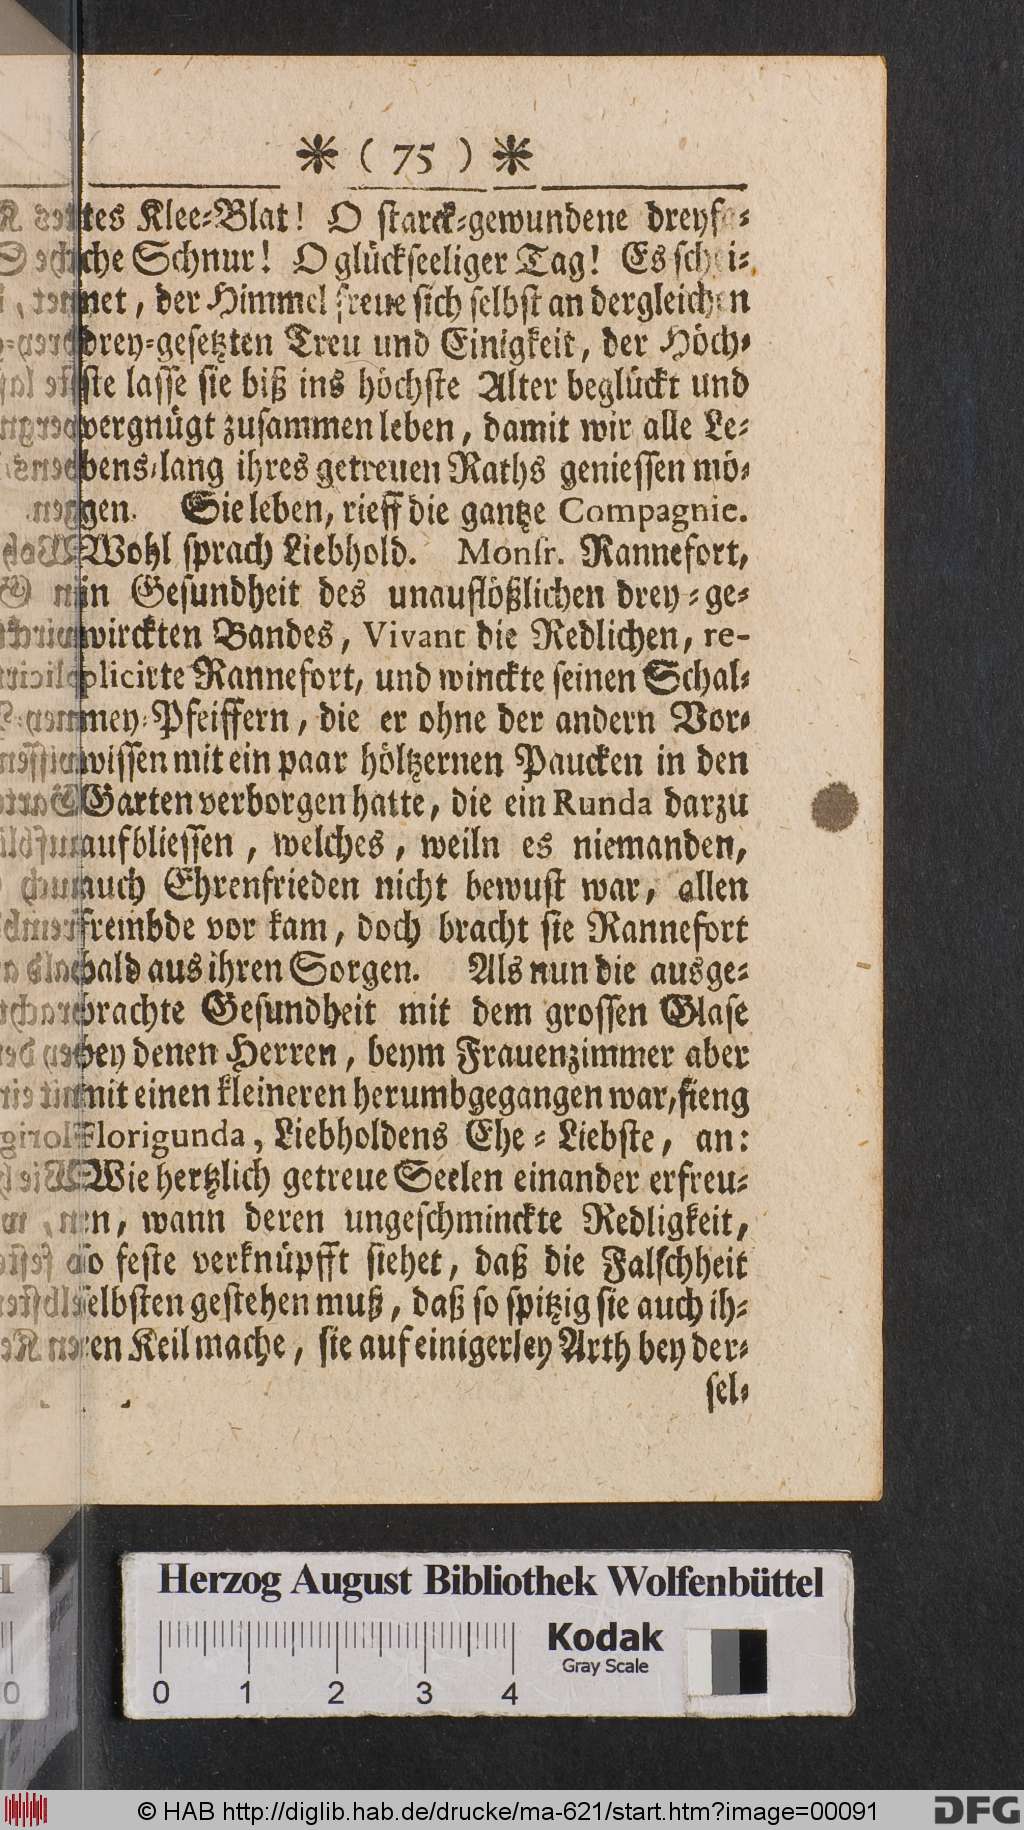 ❋ ( 75 ) ❋
tes Klee-Blat! O starck-gewundene dreyfa-
che Schnur! O glückseeliger Tag! Es schei-
net, der Himmel freue sich selbst an dergleichen
drey-gesetzten Treu und Einigkeit, der Höch-
ste lasse sie biß ins höchste Alter beglückt und
vergnügt zusammen leben, damit wir alle Le-
bens-lang ihres getreuen Raths geniessen mö-
gen. Sie leben, rieff die gantze Compagnie.
Wohl sprach Liebhold. Monsr. Rannefort,
in Gesundheit des unauflößlichen drey-ge-
wirckten Bandes, Vivant die Redlichen, re-
plicirte Rannefort, und winckte seinen Schal-
mey-Pfeiffern, die er ohne der andern Vor-
wissen mit ein paar höltzernen Paucken in den
Garten verborgen hatte, die ein Runda darzu
aufbliessen, welches, weiln es niemanden,
auch Ehrenfrieden nicht bewust war, allen
frembde vor kam, doch bracht sie Rannefort
bald aus ihren Sorgen. Als nun die ausge-
brachte Gesundheit mit dem grossen Glase
bey denen Herren, beym Frauenzimmer aber
mit einen kleineren herumbgegangen war, fieng
Florigunda, Liebholdens Ehe-Liebste, an:
Wie hertzlich getreue Seelen einander erfreu-
en, wann deren ungeschminckte Redligkeit,
so feste verknüpfft siehet, daß die Falschheit
selbsten gestehen muß, daß so spitzig sie auch ih-
ren Keil mache, sie auf einigerley Arth bey der-
sel-
Herzog August Bibliothek Wolfenbüttel
Kodak
Gray Scale
0 1 2 3 4
© HAB http://diglib.hab.de/drucke/ma-621/start.htm?image=00091
DFG